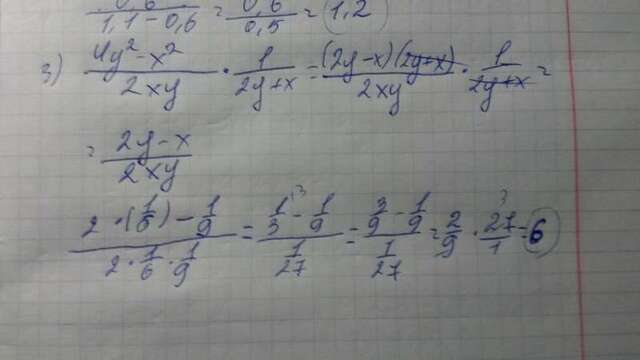 0,6/(1,1-0,6) = 0,6/0,5 = 1,2
3) (4y²-x²)/(2xy) · 1/(2y+x) = ((2y-x)(2y+x))/(2xy) · 1/(2y+x) =
= (2y-x)/(2xy)
(2·(1/6) - 1/9)/(2·1/6·1/9) = (1/3 - 1/9)/(1/27) = (3/9 - 1/9)/(1/27) = 2/9 · 27/1 = 6